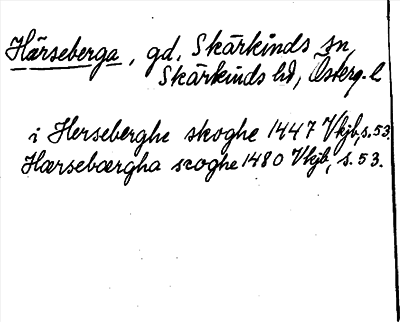 Härseberga, gd, Skärkinds sn,
Skärkinds hd, Österg. l
i Herseberghe skoghe 1447 Vkjb, s. 53.
Hærsebærgha scoghe 1480 Vkjb, s. 53.